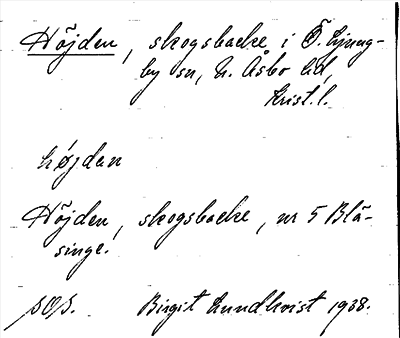 Höjden, skogsbacke i Ö. Ljung-
by sn, N. Åsbo hd,
Krist. l.
højdan
Höjden, skogsbacke, nr 5 Blä-
singe.
Birgit Lundkvist 1938.